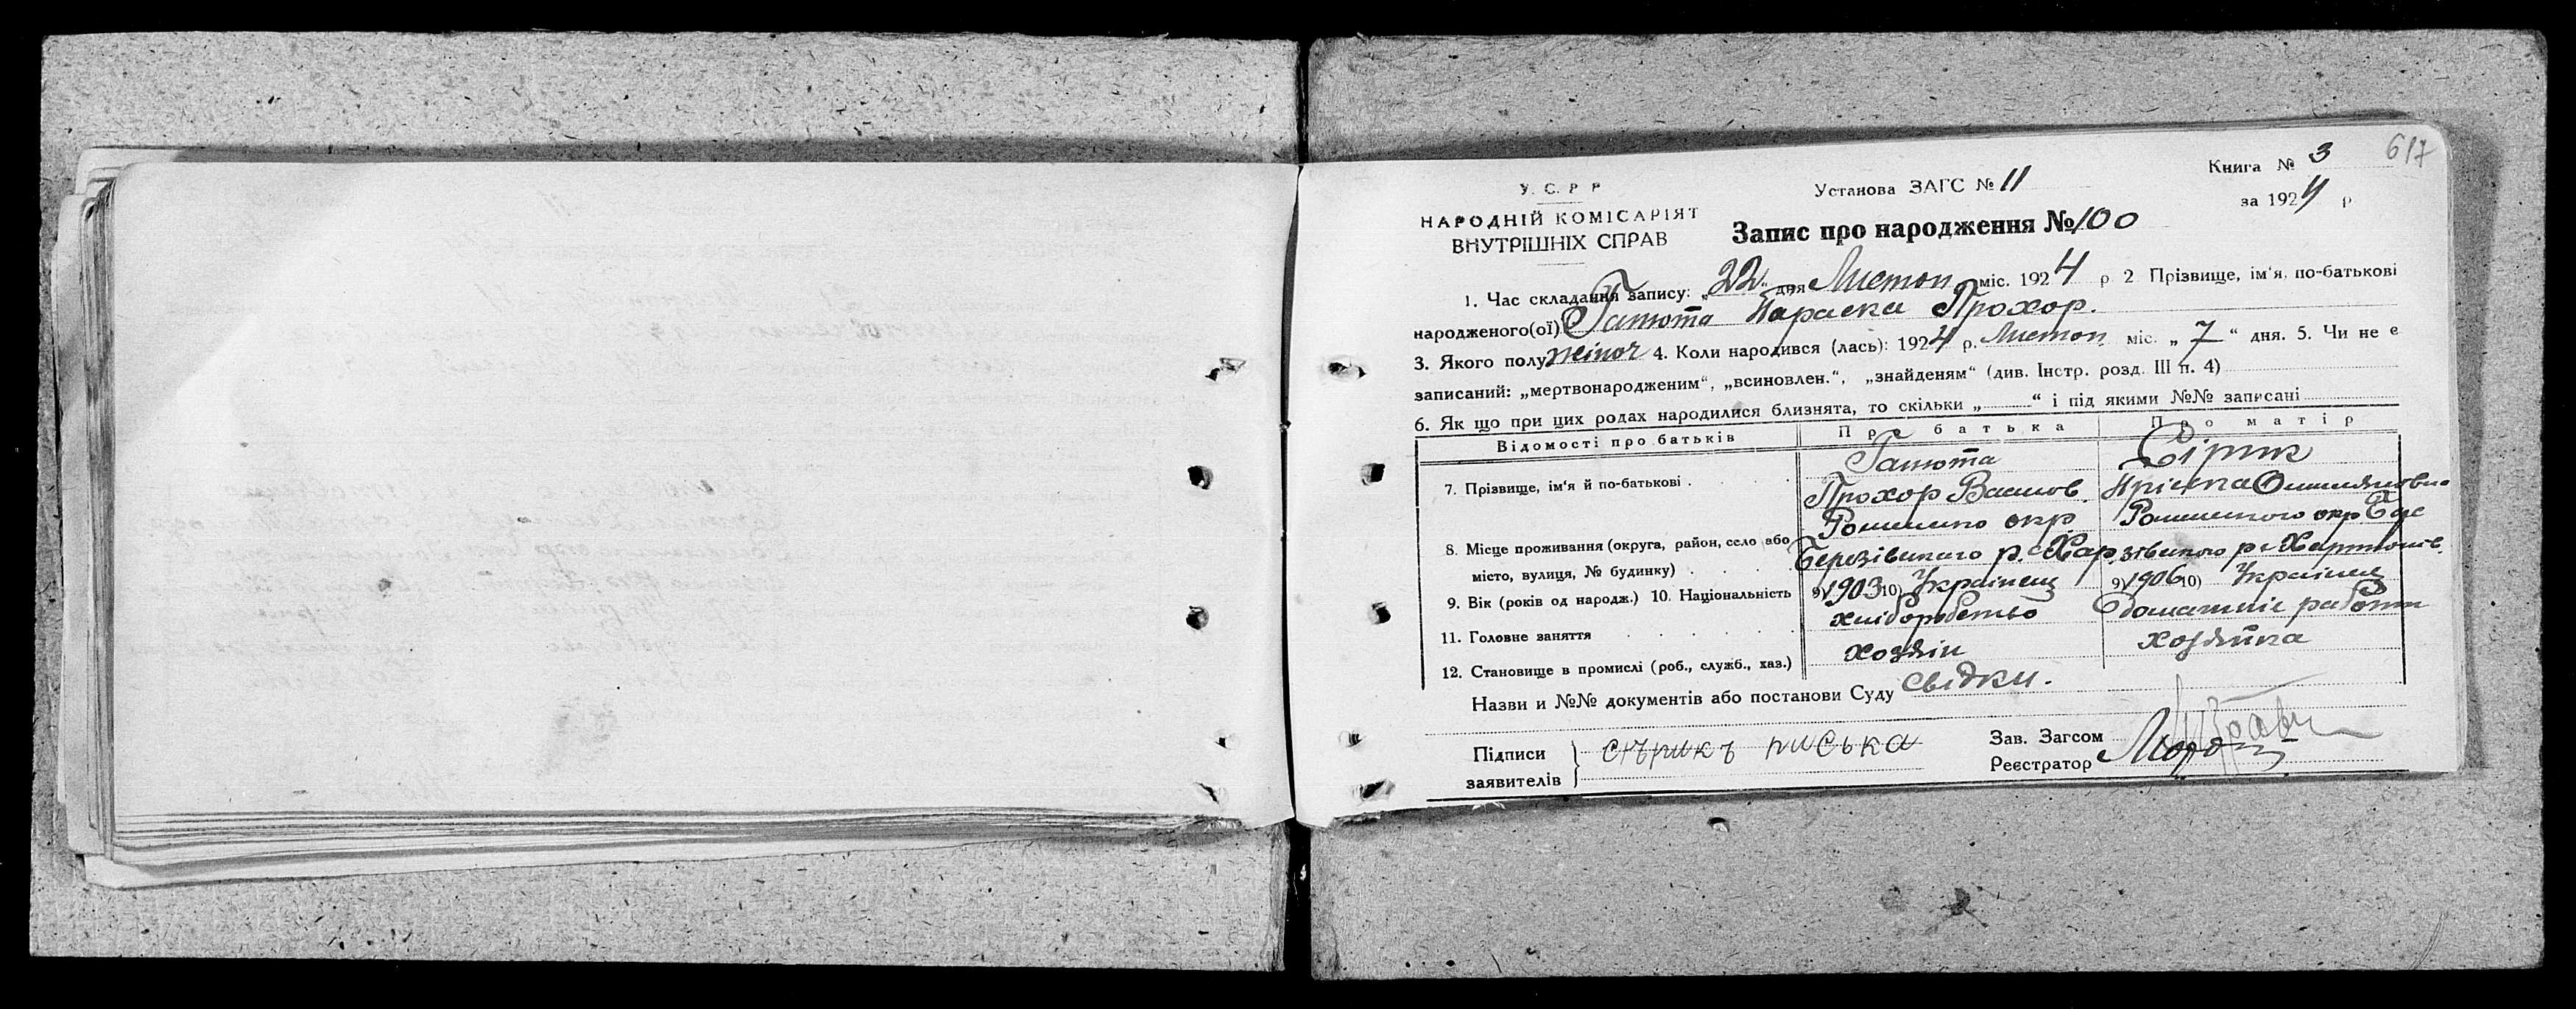 617
Книга № 3
за 1924 р
У. С. Р Р
НАРОДНІЙ КОМІСАРІЯТ
ВНУТРІШНІХ СПРАВ
Установа ЗАГС № 11
Запис про народження № 100
1. Час складання запису: „22“ дня Листоп міс. 1924 р 2 Прізвище, ім'я, по-батькові
народженого(ої) Гатюта Параска Прохор.
3. Якого полу жіноч 4. Коли народився (лась): 1924 р. Листоп міс. „7“ дня. 5. Чи не є
записаний: „мертвонародженим“, „всиновлен.“, „знайденям“ (див. Інстр. розд. III п. 4)
6. Як що при цих родах народилися близнята, то скільки „ “ і під якими №№ записані
Відомості про батьків Про батька Про матір
7. Прізвище, ім'я й по-батькові Гатюта Сірик
Прохор Васильов.
8. Місце проживання (округа, район, село або Роменсько окр Роменського окр Бере
місто, вулиця, № будинку) Березівського р. с Хар зівського р с Хартонів.
9. Вік (років од народж.) 10. Національність 9) 1903 10) Українец 9) 1906 10) Українец
11. Головне заняття хліборобство домашніе работи
12. Становище в промислі (роб., служб., хаз.) хозяін хозяйка
Назви и №№ документів або постанови Суду Свідки.
Підписи
заявителів } сѣрикъ риська
Зав. Загсом
Реєстратор